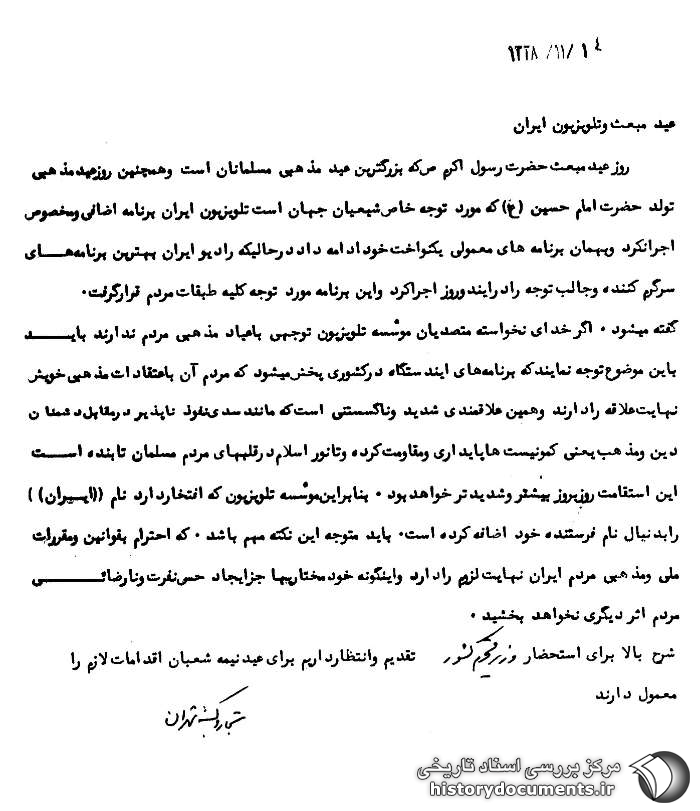 ۱۳۳۸/۱۱/۱۴
عید مبعث و تلویزیون ایران
روز عید مبعث حضرت رسول اکرم ص که بزرگترین عید مذهبی مسلمانان است و همچنین روز عید مذهبی
تولد حضرت امام حسین (ع) که مورد توجه خاص شیعیان جهان است تلویزیون ایران برنامه اضافی و مخصوص
اجرا نکرد و بهمان برنامه های معمولی یکنواخت خود ادامه داد در حالیکه رادیو ایران بهترین برنامه های
سرگرم کننده و جالب توجه را در ایندو روز اجرا کرد و این برنامه مورد توجه کلیه طبقات مردم قرار گرفت.
گفته میشود . اگر خدای نخواسته متصدیان موسسه تلویزیون توجهی باعیاد مذهبی مردم ندارند باید
باین موضوع توجه نمایند که برنامه های ایندستگاه در کشوری پخش میشود که مردم آن باعتقادات مذهبی خویش
نهایت علاقه را دارند و همین علاقمندی شدید و ناگسستنی است که مانند سدی نفوذ ناپذیر در مقابل دشمنان
دین و مذهب یعنی کمونیست ها پایداری و مقاومت کرده و تا نور اسلام در قلبهای مردم مسلمان تابنده است
این استقامت روز بروز بیشتر و شدید تر خواهد بود . بنابراین موسسه تلویزیون که افتخار دارد نام ((ایران))
را بدنبال نام فرستنده خود اضافه کرده است. باید متوجه این نکته مهم باشد . که احترام بقوانین و مقررات
ملی و مذهبی مردم ایران نهایت لزوم را دارد و اینگونه خود مختاریها جز ایجاد حس نفرت و نارضائی
مردم اثر دیگری نخواهد بخشید .
شرح بالا برای استحضار وزیر محترم کشور تقدیم و انتظار داریم برای عید نیمه شعبان اقدامات لازم را
معمول دارند
تهران
مرکز بررسی اسناد تاریخی
historydocuments.ir